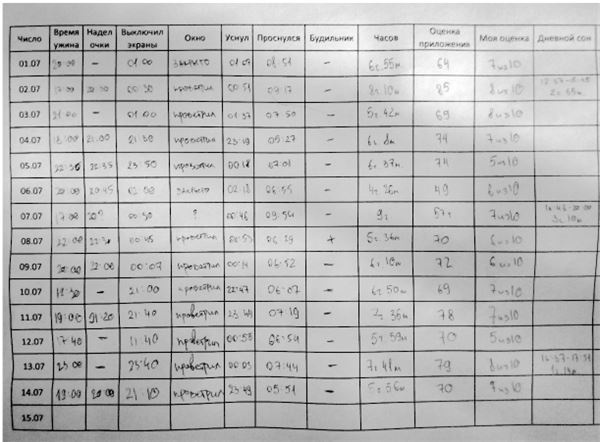 Число Время ужина Надел очки Выключил экраны Окно Уснул Проснулся Будильник Часов Оценка приложения Моя оценка Дневной сон
01.07 20:00 – 01:00 закрыто 01:07 08:51 – 6ч 55м 64 7 из 10
02.07 17:00 00:30 проветрил 00:51 09:17 – 8ч 10м 85 8 из 10
03.07 21:00 – 01:00 проветрил 01:37 07:50 – 5ч 42м 69 8 из 10
04.07 18:00 21:00 21:30 проветрил 05:27 – 6ч 8м 74 7 из 10
05.07 22:30 22:35 23:50 проветрил 00:18 07:01 – 6ч 37м 74 5 из 10
06.07 20:00 20:45 02:00 закрыто 02:18 06:55 – 4ч 26м 49 6 из 10
07.07 17:00 20? 00:30 ? 00:46 09:54 – 9ч 7 из 10
08.07 22:00 22:30 00:45 проветрил 00:53 06:29 + 5ч 36м 70 6 из 10
09.07 20:00 22:00 00:07 проветрил 00:14 06:52 – 6ч 10м 72 6 из 10
10.07 – 21:00 проветрил 22:47 06:07 – 6ч 50м 69 7 из 10
11.07 19:00 21:20 21:40 проветрил 07:19 – 7ч 36м 78 7 из 10
12.07 17:40 – 11:40 проветрил 00:55 06:54 – 5ч 59м 70 5 из 10
13.07 23:00 – 23:40 проветрил 00:03 07:44 – 7ч 41м 79 8 из 10
14.07 19:00 20:00 21:10 проветрил 23:49 05:51 – 5ч 56м 70 7 из 10
15.07